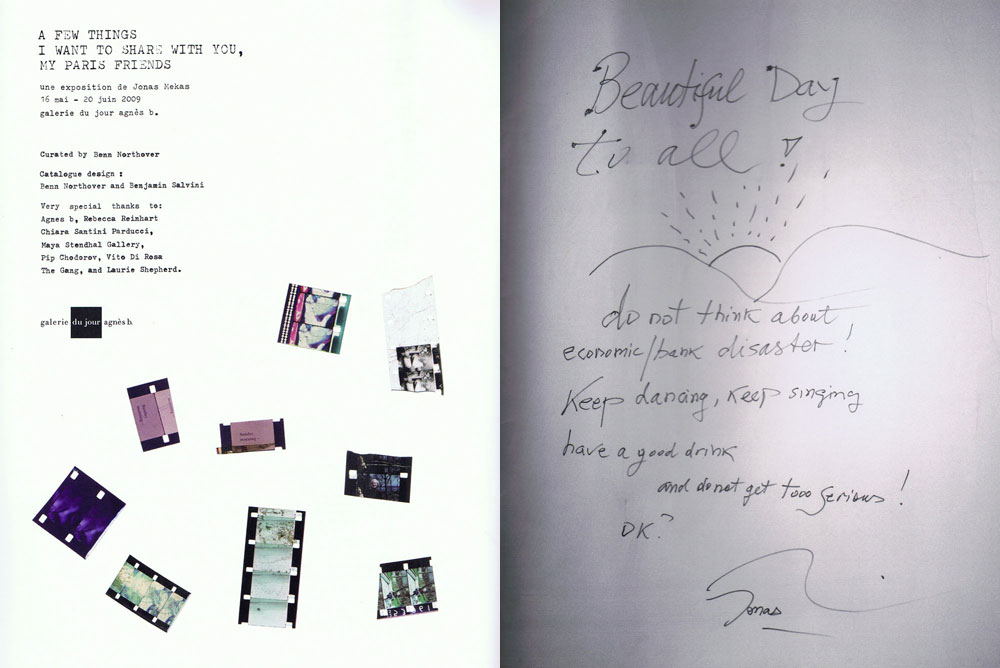 A FEW THINGS
I WANT TO SHARE WITH YOU,
MY PARIS FRIENDS
une exposition de Jonas Mekas
16 mai - 20 juin 2009
galerie du jour agnès b.
Curated by Benn Northover
Catalogue design :
Benn Northover and Benjamin Salvini
Very special thanks to:
Agnes b, Rebecca Reinhart
Chiara Santini Parducci,
Maya Stendhal Gallery,
Pip Chodorov, Vito Di Rosa
The Gang, and Laurie Shepherd.
galerie du jour agnès b.
Beautiful Day
to all !
do not think about
economic/bank disaster !
Keep dancing, keep singing
have a good drink
and do not get tooo serious !
OK?
Jonas